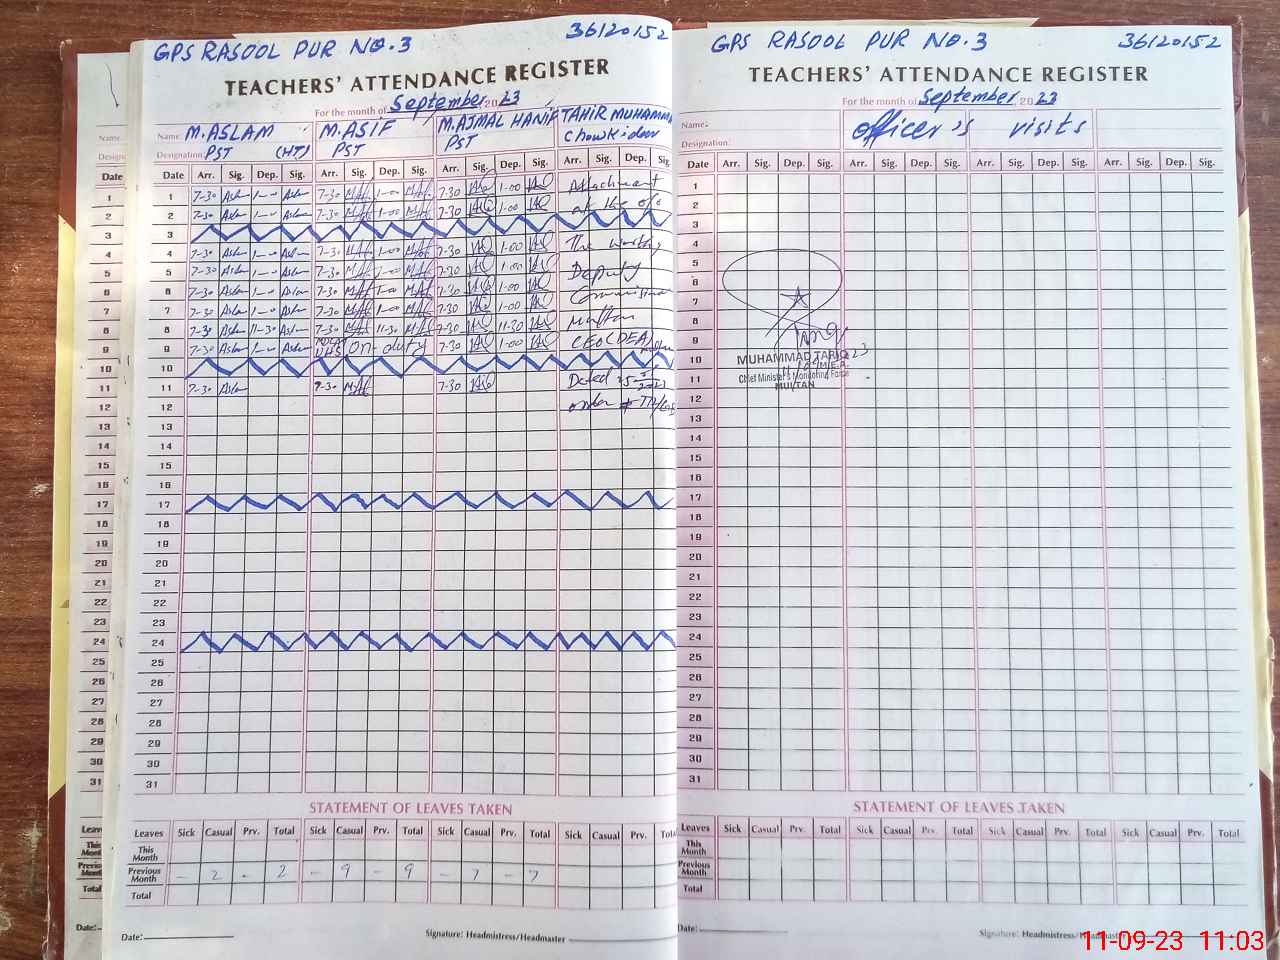 GPS RASOOL PUR NO.3 36120152
TEACHERS' ATTENDANCE REGISTER
For the month of September 20 23
Name: M.ASLAM M.ASIF M.AJMAL HANIF TAHIR MUHAMMA
Designation: PST (HT) PST PST Chowkidar
Date Arr. Sig. Dep. Sig. Arr. Sig. Dep. Sig. Arr. Sig. Dep. Sig. Arr. Sig. Dep. Sig.
1 7-30 Aslam 1-00 Aslam 7-30 1-00 7-30 1-00 Attachment
2 7-30 Aslam 1-00 Aslam 7-30 1-00 7-30 1-00 at the o/o
3
4 7-30 Aslam 1-00 Aslam 7-30 1-00 7-30 1-00 The worthy
5 7-30 Aslam 1-00 Aslam 7-30 1-00 7-30 1-00 Deputy
6 7-30 Aslam 1-00 Aslam 7-30 1-00 7-30 1-00
7 7-30 Aslam 1-00 Aslam 7-30 1-00 7-30 1-00 Multan
8 7-30 Aslam 11-30 Aslam 7-30 11-30 7-30 11-30 CEO(DEA)
9 7-30 Aslam 1-00 Aslam On-duty 7-30 1-00
10
11 7-30 Aslam 7-30 7-30 Dated
12 order #
13
14
15
16
17
18
19
20
21
22
23
24
25
26
27
28
29
30
31
STATEMENT OF LEAVES TAKEN
Leaves Sick Casual Prv. Total Sick Casual Prv. Total Sick Casual Prv. Total Sick Casual Prv. Total
This Month
Previous Month - 2 - 2 - 9 - 9 - 7 - 7
Total
Date: Signature: Headmistress/Headmaster
GPS RASOOL PUR NO.3 36120152
TEACHERS' ATTENDANCE REGISTER
For the month of September 20 23
Name: officer's visits
Designation:
Date Arr. Sig. Dep. Sig. Arr. Sig. Dep. Sig. Arr. Sig. Dep. Sig. Arr. Sig. Dep. Sig.
1
2
3
4
5
6
7
8
9
10
11
12
13
14
15
16
17
18
19
20
21
22
23
24
25
26
27
28
29
30
31
MUHAMMAD TARIQ
M.E.A
Chief Minister's Monitoring Force
MULTAN
STATEMENT OF LEAVES TAKEN
Leaves Sick Casual Prv. Total Sick Casual Prv. Total Sick Casual Prv. Total Sick Casual Prv. Total
This Month
Previous Month
Total
Date: Signature: Headmistress/Headmaster
11-09-23 11:03